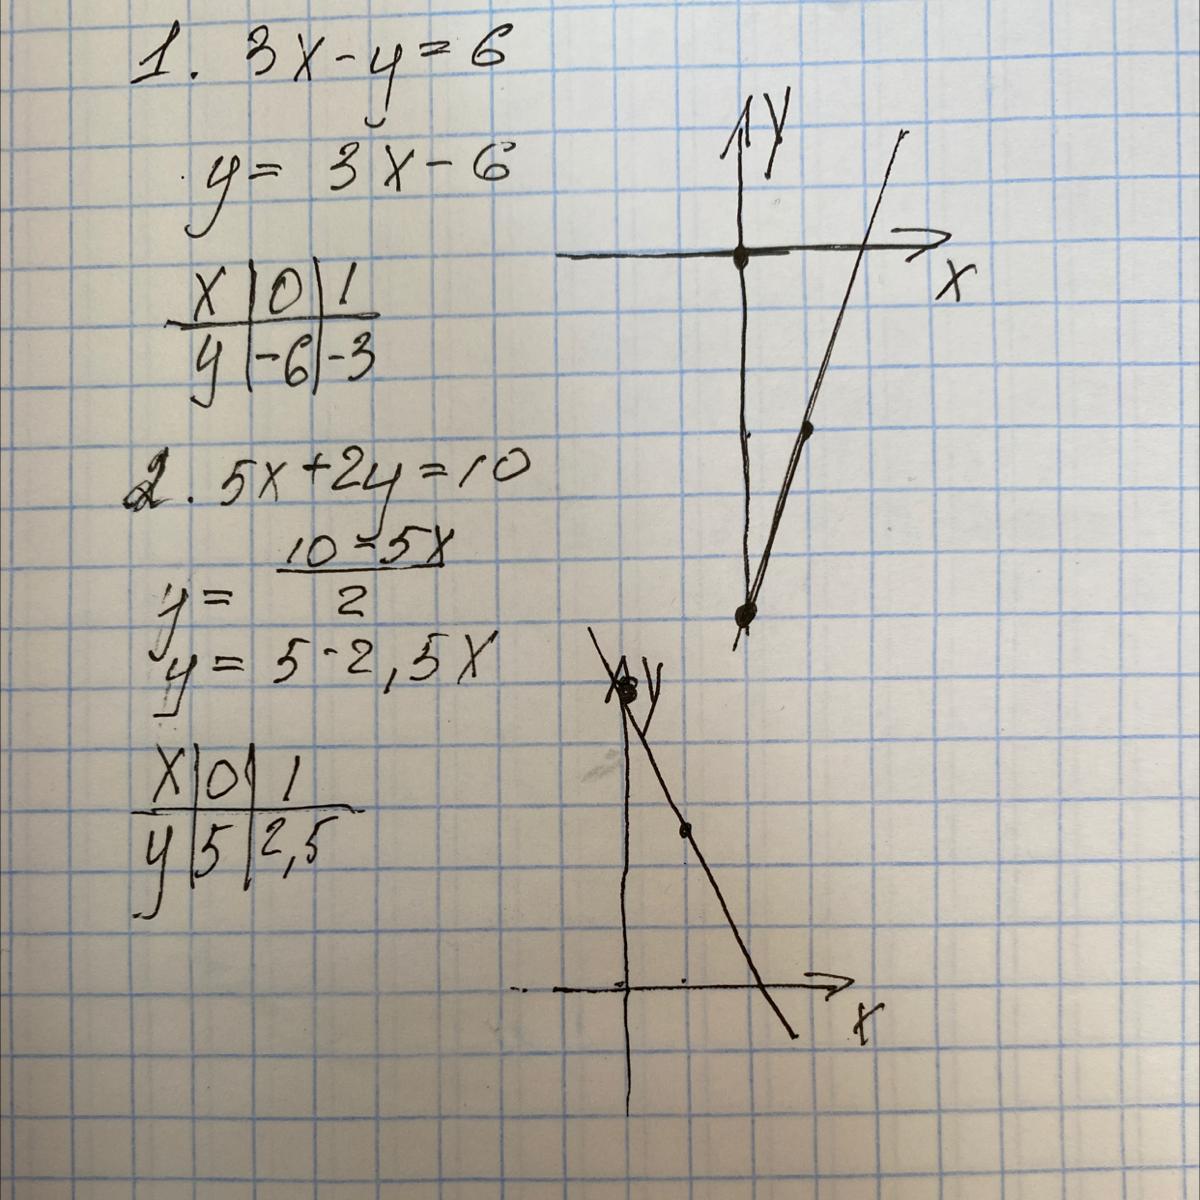 1. 3x - y = 6
y = 3x - 6
x | 0 | 1
y | -6 | -3
2. 5x + 2y = 10
y = (10 - 5x)/2
y = 5 - 2,5x
x | 0 | 1
y | 5 | 2,5
y
x
y
x